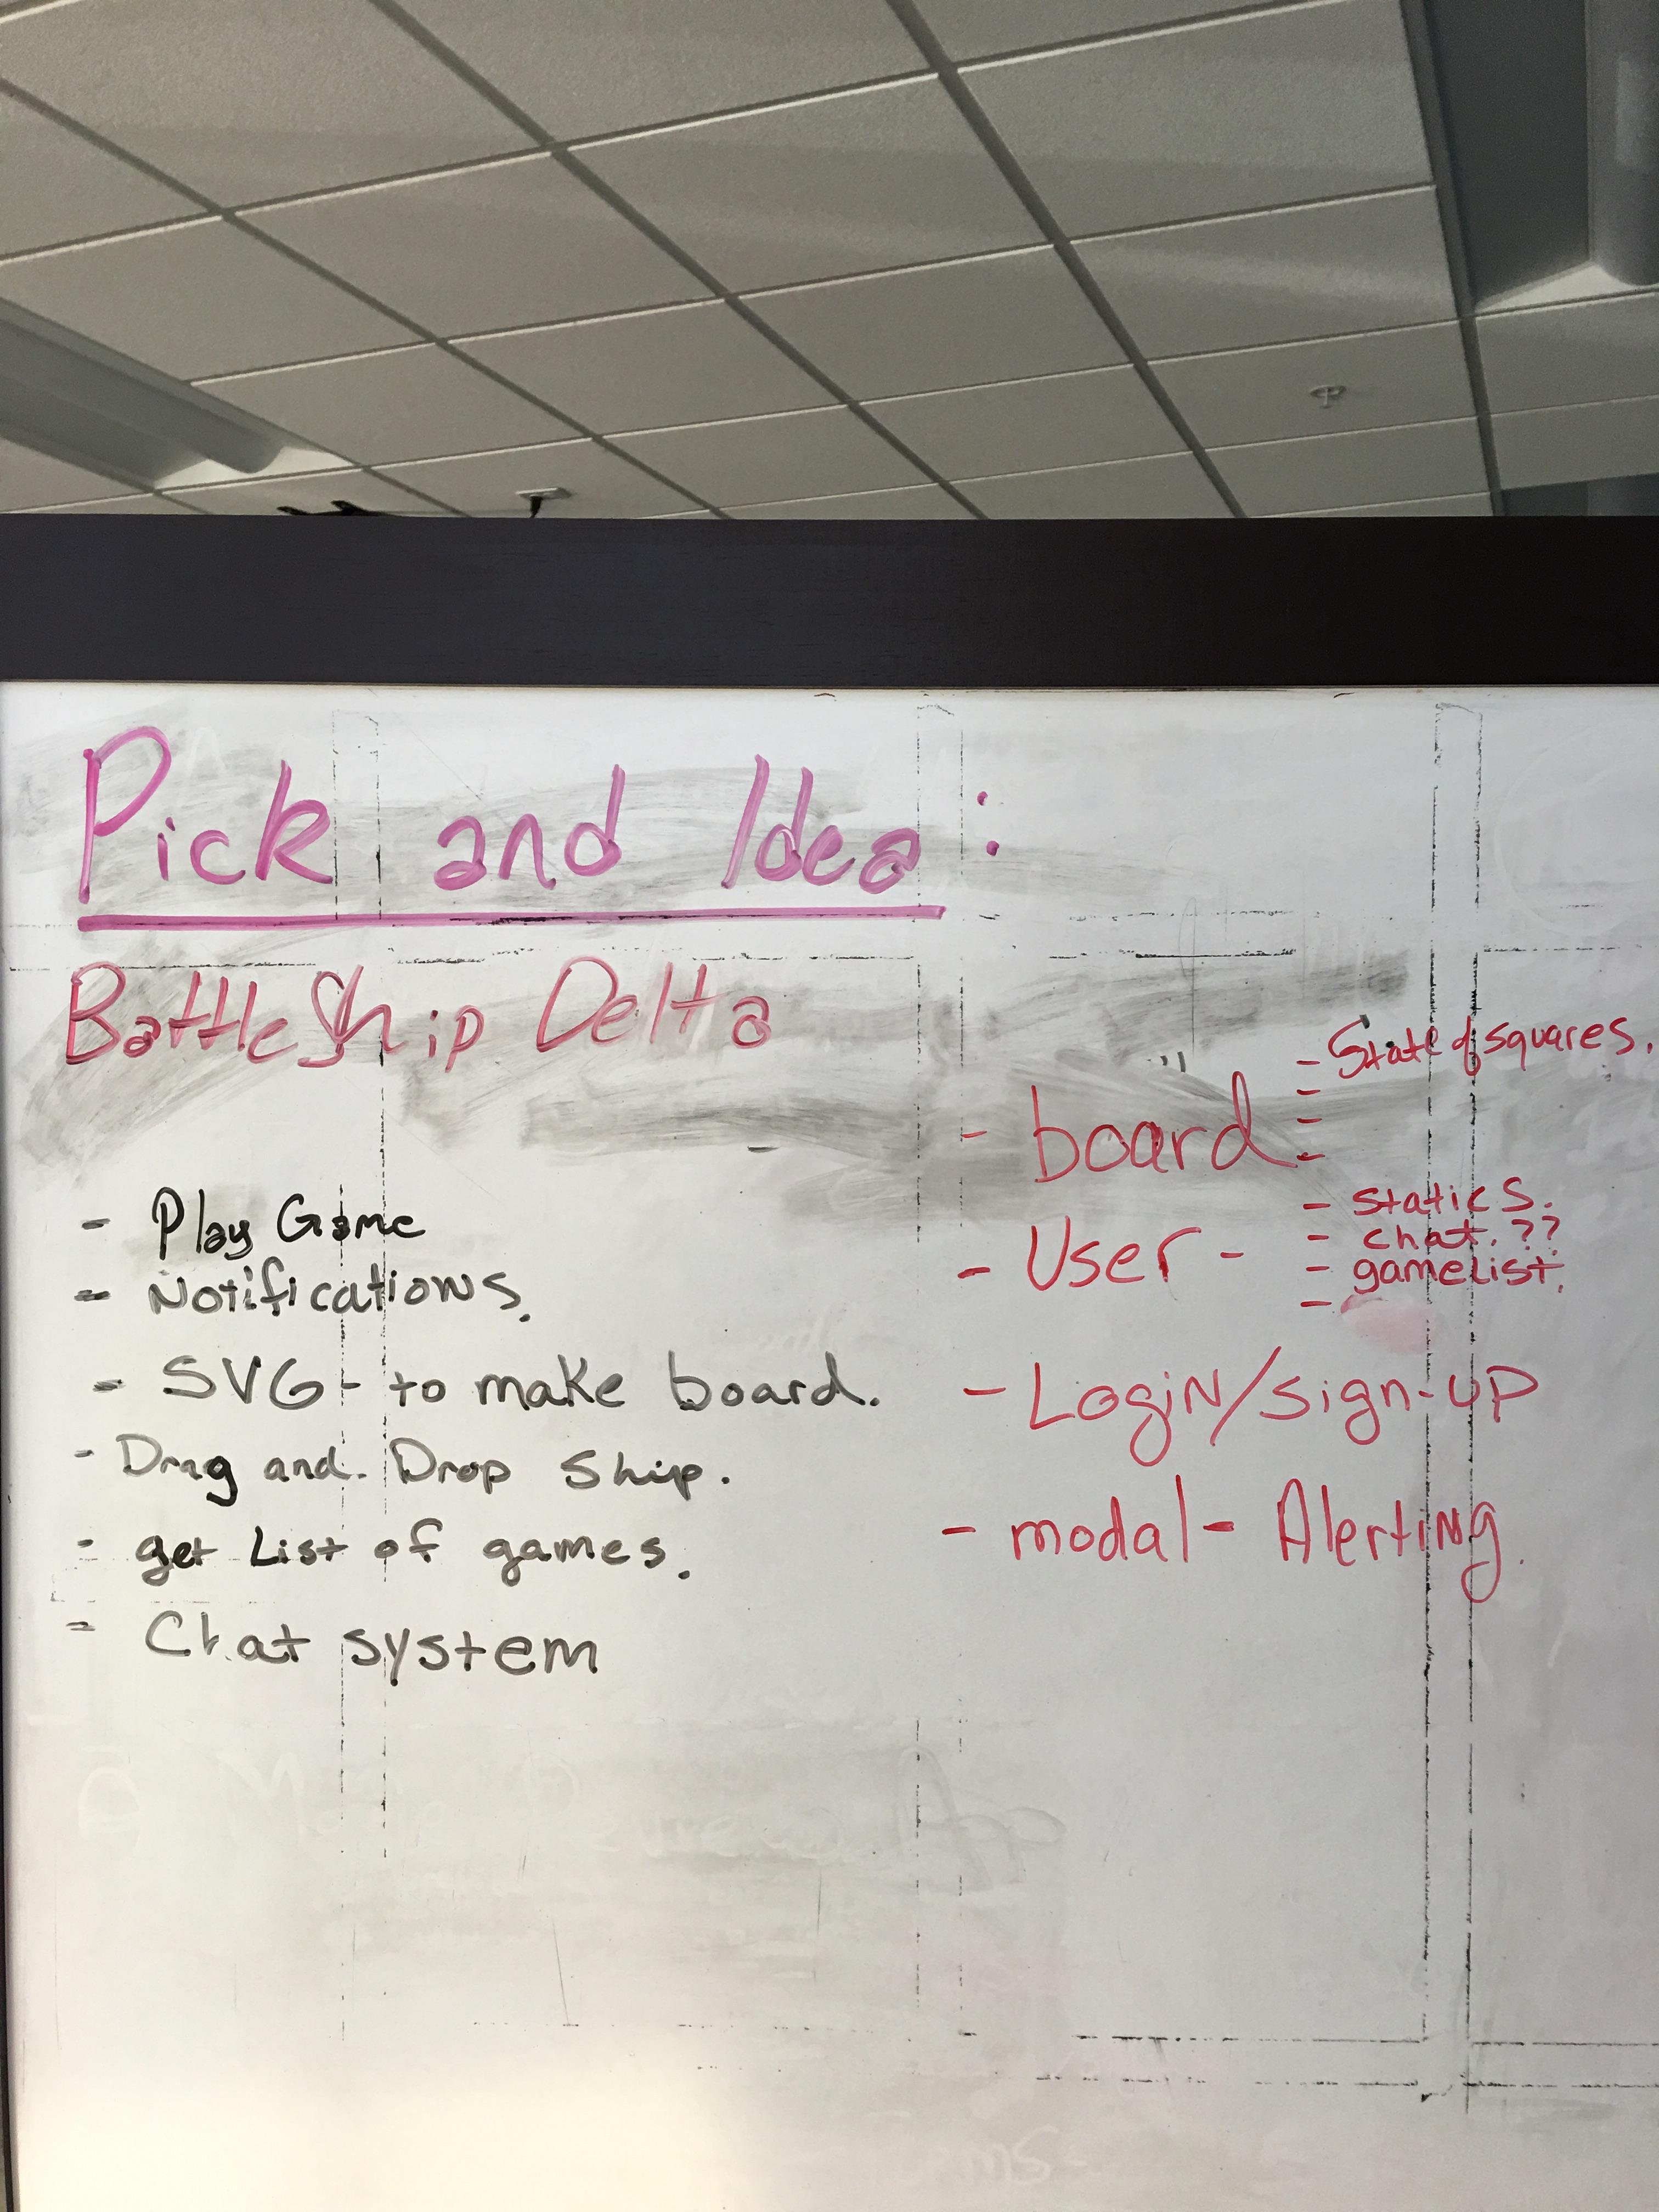 Pick and Idea:
BattleShip Delta
- Play Game
- Notifications.
- SVG - to make board.
- Drag and. Drop Ship.
- get List of games.
- Chat system
- board - State of squares.
-
-
-
- User - - statics.
- chat. ??
- gamelist.
-
- Login/sign-up
- modal - Alerting.